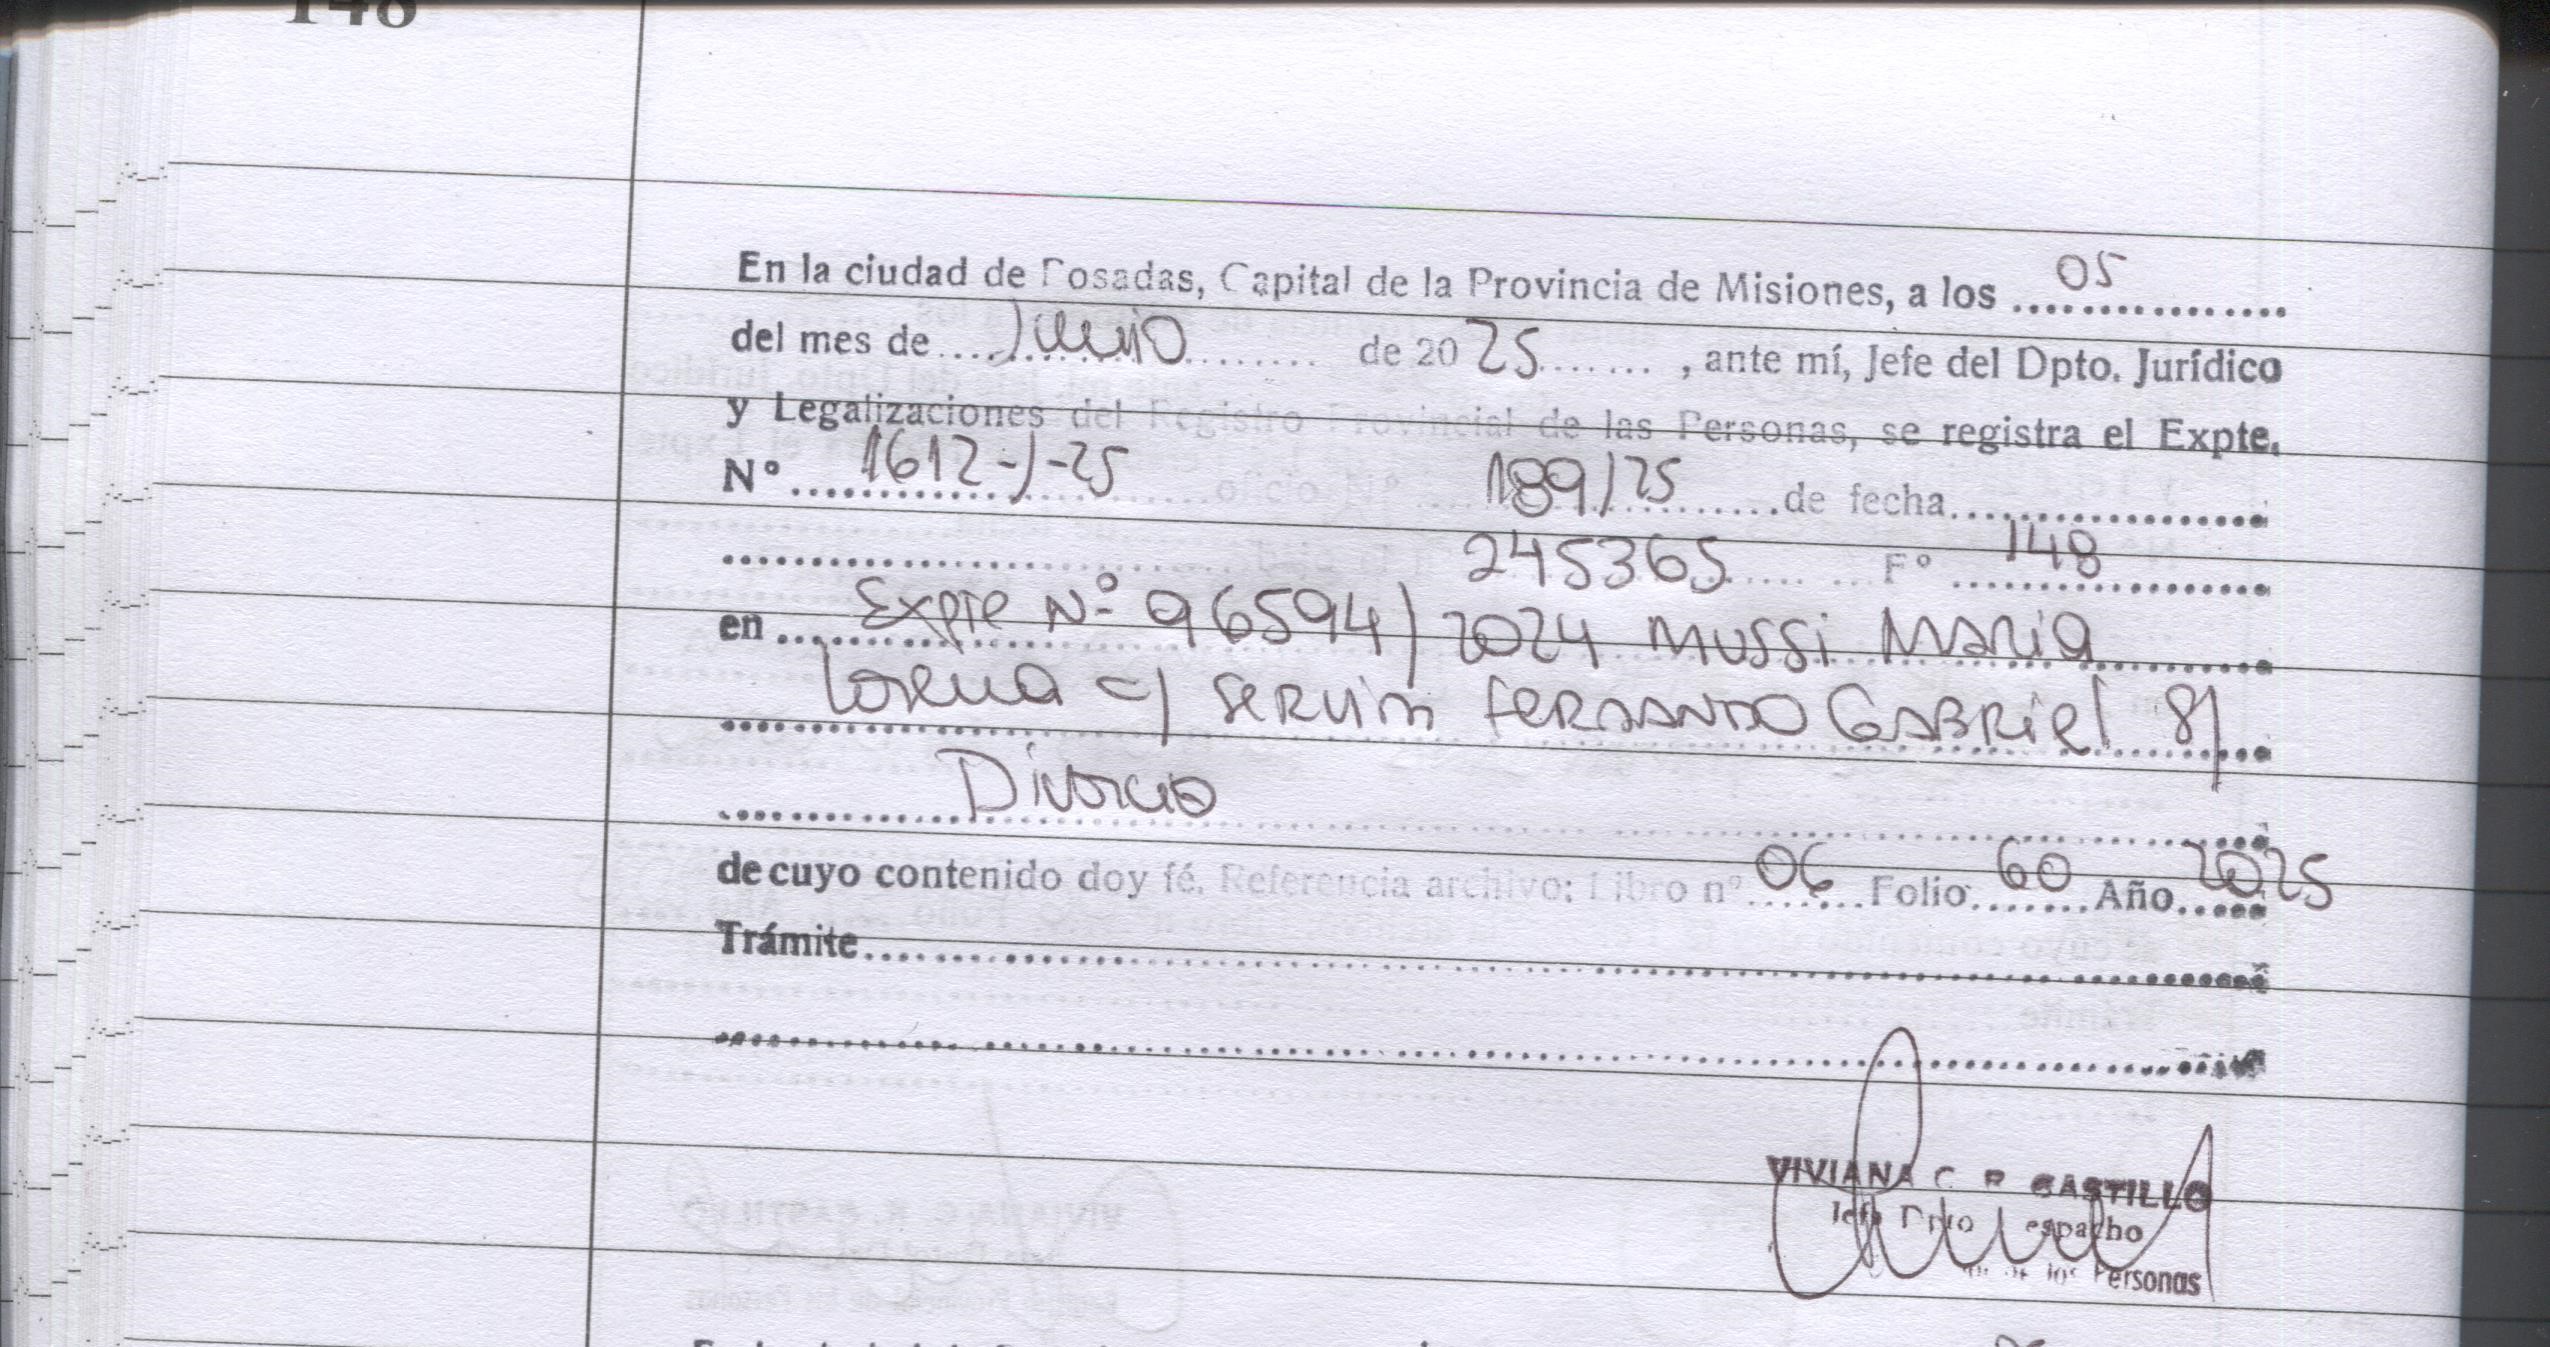 148
En la ciudad de Posadas, Capital de la Provincia de Misiones, a los 05
del mes de Junio de 2025, ante mí, Jefe del Dpto. Jurídico
y Legalizaciones del Registro Provincial de las Personas, se registra el Expte.
Nº 1612-J-25 oficio Nº 189/25 de fecha
245365 Fº 148
en Expte Nº 96594/2024 Mussi Maria
Lorena c/ Servin Fernando Gabriel s/
Divorcio
de cuyo contenido doy fé. Referencia archivo: Libro nº 06 Folio 60 Año 2025
Trámite
VIVIANA C. R. CASTILLO
Jefe Dpto Despacho
de las Personas